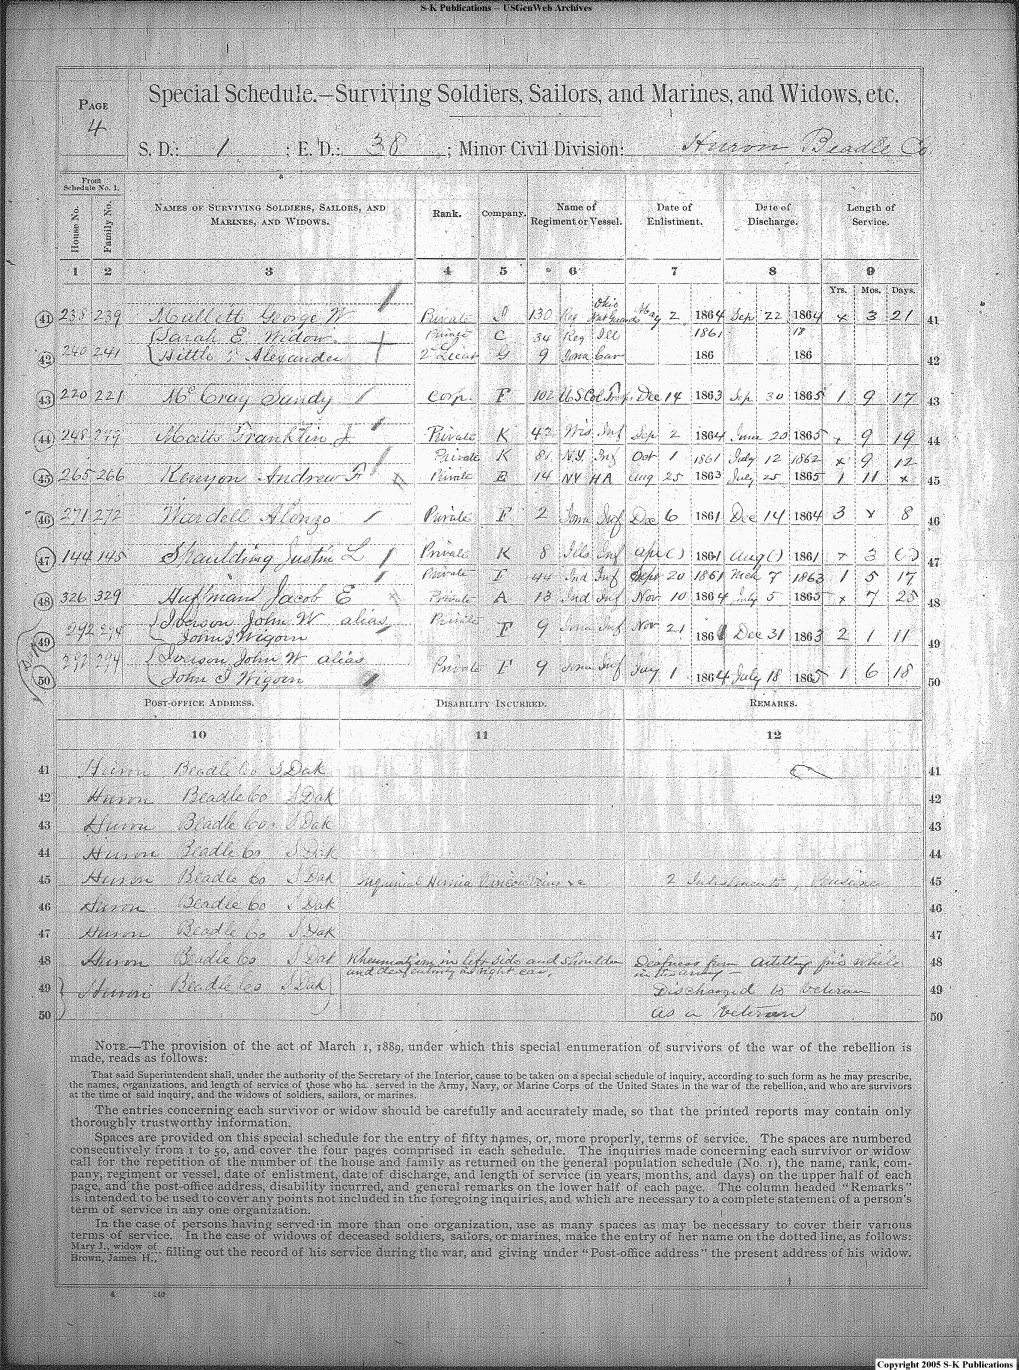 S-K Publications -- USGenWeb Archives
PAGE
4
Special Schedule.—Surviving Soldiers, Sailors, and Marines, and Widows, etc.
S. D.: 1 ; E. D.: 38 ; Minor Civil Division: Huron Beadle Co.
From Schedule No. 1.
House No. Family No. NAMES OF SURVIVING SOLDIERS, SAILORS, AND MARINES, AND WIDOWS. Rank. Company. Name of Regiment or Vessel. Date of Enlistment. Date of Discharge. Length of Service.
1 2 3 4 5 6 7 8 9
Yrs. Mos. Days.
41 238 239 Mullett George W Private I 130 Reg Ohio Nat Guards May 2 1864 Sep 22 1864 x 3 21 41
Sarah E Widow Private C 34 Reg Ill 1861 18
42 240 241 Alexander 2d Lieut G 9 Iowa Cav 186 186 42
43 220 221 McCray Sandy Corp. F 102 US Col Trp. Dec 14 1863 Sep 30 1865 1 9 17 43
44 248 Franklin J Private K 42 Wis Inf Sep 2 1864 June 20 1865 x 9 19 44
Private K 81 N.Y. Inf Oct 1 1861 July 12 1862 x 9 12
45 265 266 Kenyon Andrew F Private E 14 NY HA Aug 25 1863 July 25 1865 1 11 x 45
46 271 272 Wardell Alonzo Private F 2 Iowa Inf Dec 6 1861 Dec 14 1864 3 x 8 46
47 144 145 Spaulding Justin L Private K 8 Ills Inf Apr ( ) 1861 Aug ( ) 1861 x 3 ( ) 47
Private F 44 Ind Inf Sept 20 1861 Mch 7 1863 1 5 17
48 326 329 Huffman Jacob E Private A 13 Ind Inf Nov 10 1864 July 5 1865 x 7 25 48
49 292 294 Iverson John W alias Private F 9 Iowa Inf Nov 21 186 Dec 31 1863 2 1 11 49
John J Wigorn
50 294 Iverson John W alias Private F 9 Iowa Inf 1 1864 July 18 1865 1 6 18 50
John J Wigorn
POST-OFFICE ADDRESS. DISABILITY INCURRED. REMARKS.
10 11 12
41 Huron Beadle Co S Dak 41
42 Huron Beadle Co S Dak 42
43 Huron Beadle Co. S Dak 43
44 Huron Beadle Co S Dak 44
45 Huron Beadle Co S Dak Hernia 2 Enlistments, 45
46 Huron Beadle Co S Dak 46
47 Huron Beadle Co S Dak 47
48 Huron Beadle Co S Dak Rheumatism in left side and shoulder Deafness from while 48
and right ear. in the army
49 Huron Beadle Co S Dak Discharged to Veteran 49
50 as a veteran 50
NOTE.—The provision of the act of March 1, 1889, under which this special enumeration of survivors of the war of the rebellion is
made, reads as follows:
That said Superintendent shall, under the authority of the Secretary of the Interior, cause to be taken on a special schedule of inquiry, according to such form as he may prescribe,
the names, organizations, and length of service of those who ha served in the Army, Navy, or Marine Corps of the United States in the war of the rebellion, and who are survivors
at the time of said inquiry, and the widows of soldiers, sailors, or marines.
The entries concerning each survivor or widow should be carefully and accurately made, so that the printed reports may contain only
thoroughly trustworthy information.
Spaces are provided on this special schedule for the entry of fifty names, or, more properly, terms of service. The spaces are numbered
consecutively from 1 to 50, and cover the four pages comprised in each schedule. The inquiries made concerning each survivor or widow
call for the repetition of the number of the house and family as returned on the general population schedule (No. 1), the name, rank, com-
pany, regiment or vessel, date of enlistment, date of discharge, and length of service (in years, months, and days) on the upper half of each
page, and the post-office address, disability incurred, and general remarks on the lower half of each page. The column headed "Remarks"
is intended to be used to cover any points not included in the foregoing inquiries, and which are necessary to a complete statement of a person's
term of service in any one organization.
In the case of persons having served in more than one organization, use as many spaces as may be necessary to cover their various
terms of service. In the case of widows of deceased soldiers, sailors, or marines, make the entry of her name on the dotted line, as follows:
Mary J., widow of
Brown, James H., filling out the record of his service during the war, and giving under "Post-office address" the present address of his widow.
Copyright 2005 S-K Publications